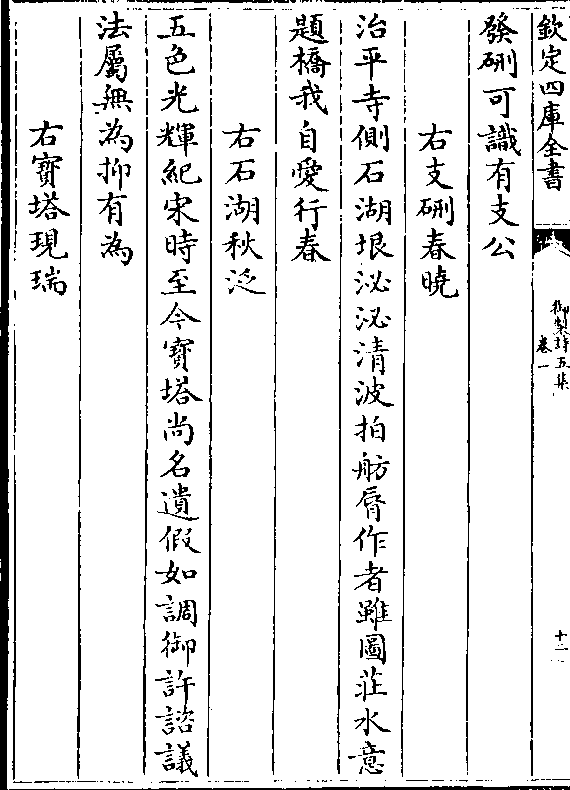 欽定四庫全書
御製詩五集
卷一
十二
發硎可識有支公
右支硎春曉
治平寺側石湖垠泌泌清波拍舫脣作者雖圖莊水意
題橋我自愛行春
右石湖秋泛
五色光輝紀宋時至今寶塔尚名遺假如調御許諮議
法屬無為抑有為
右寶塔現瑞